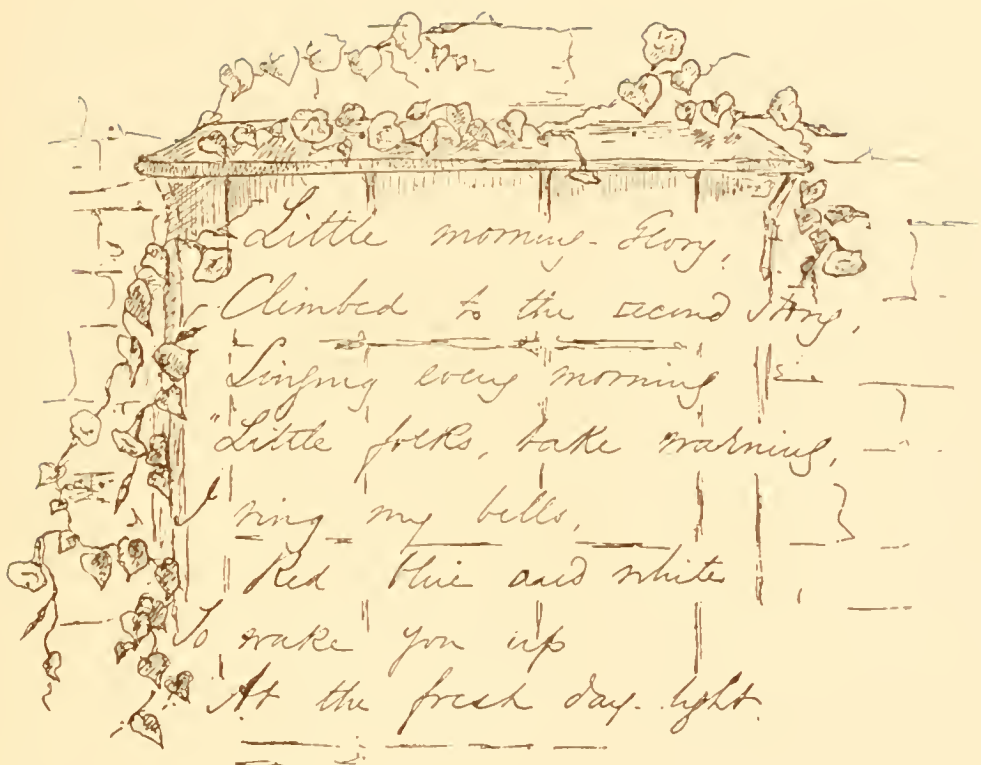 Little morning-Glory,
Climbed to the second story,
Singing every morning
"Little folks, take warning,
I ring my bells,
Red blue and white
To wake you up
At the fresh day-light.